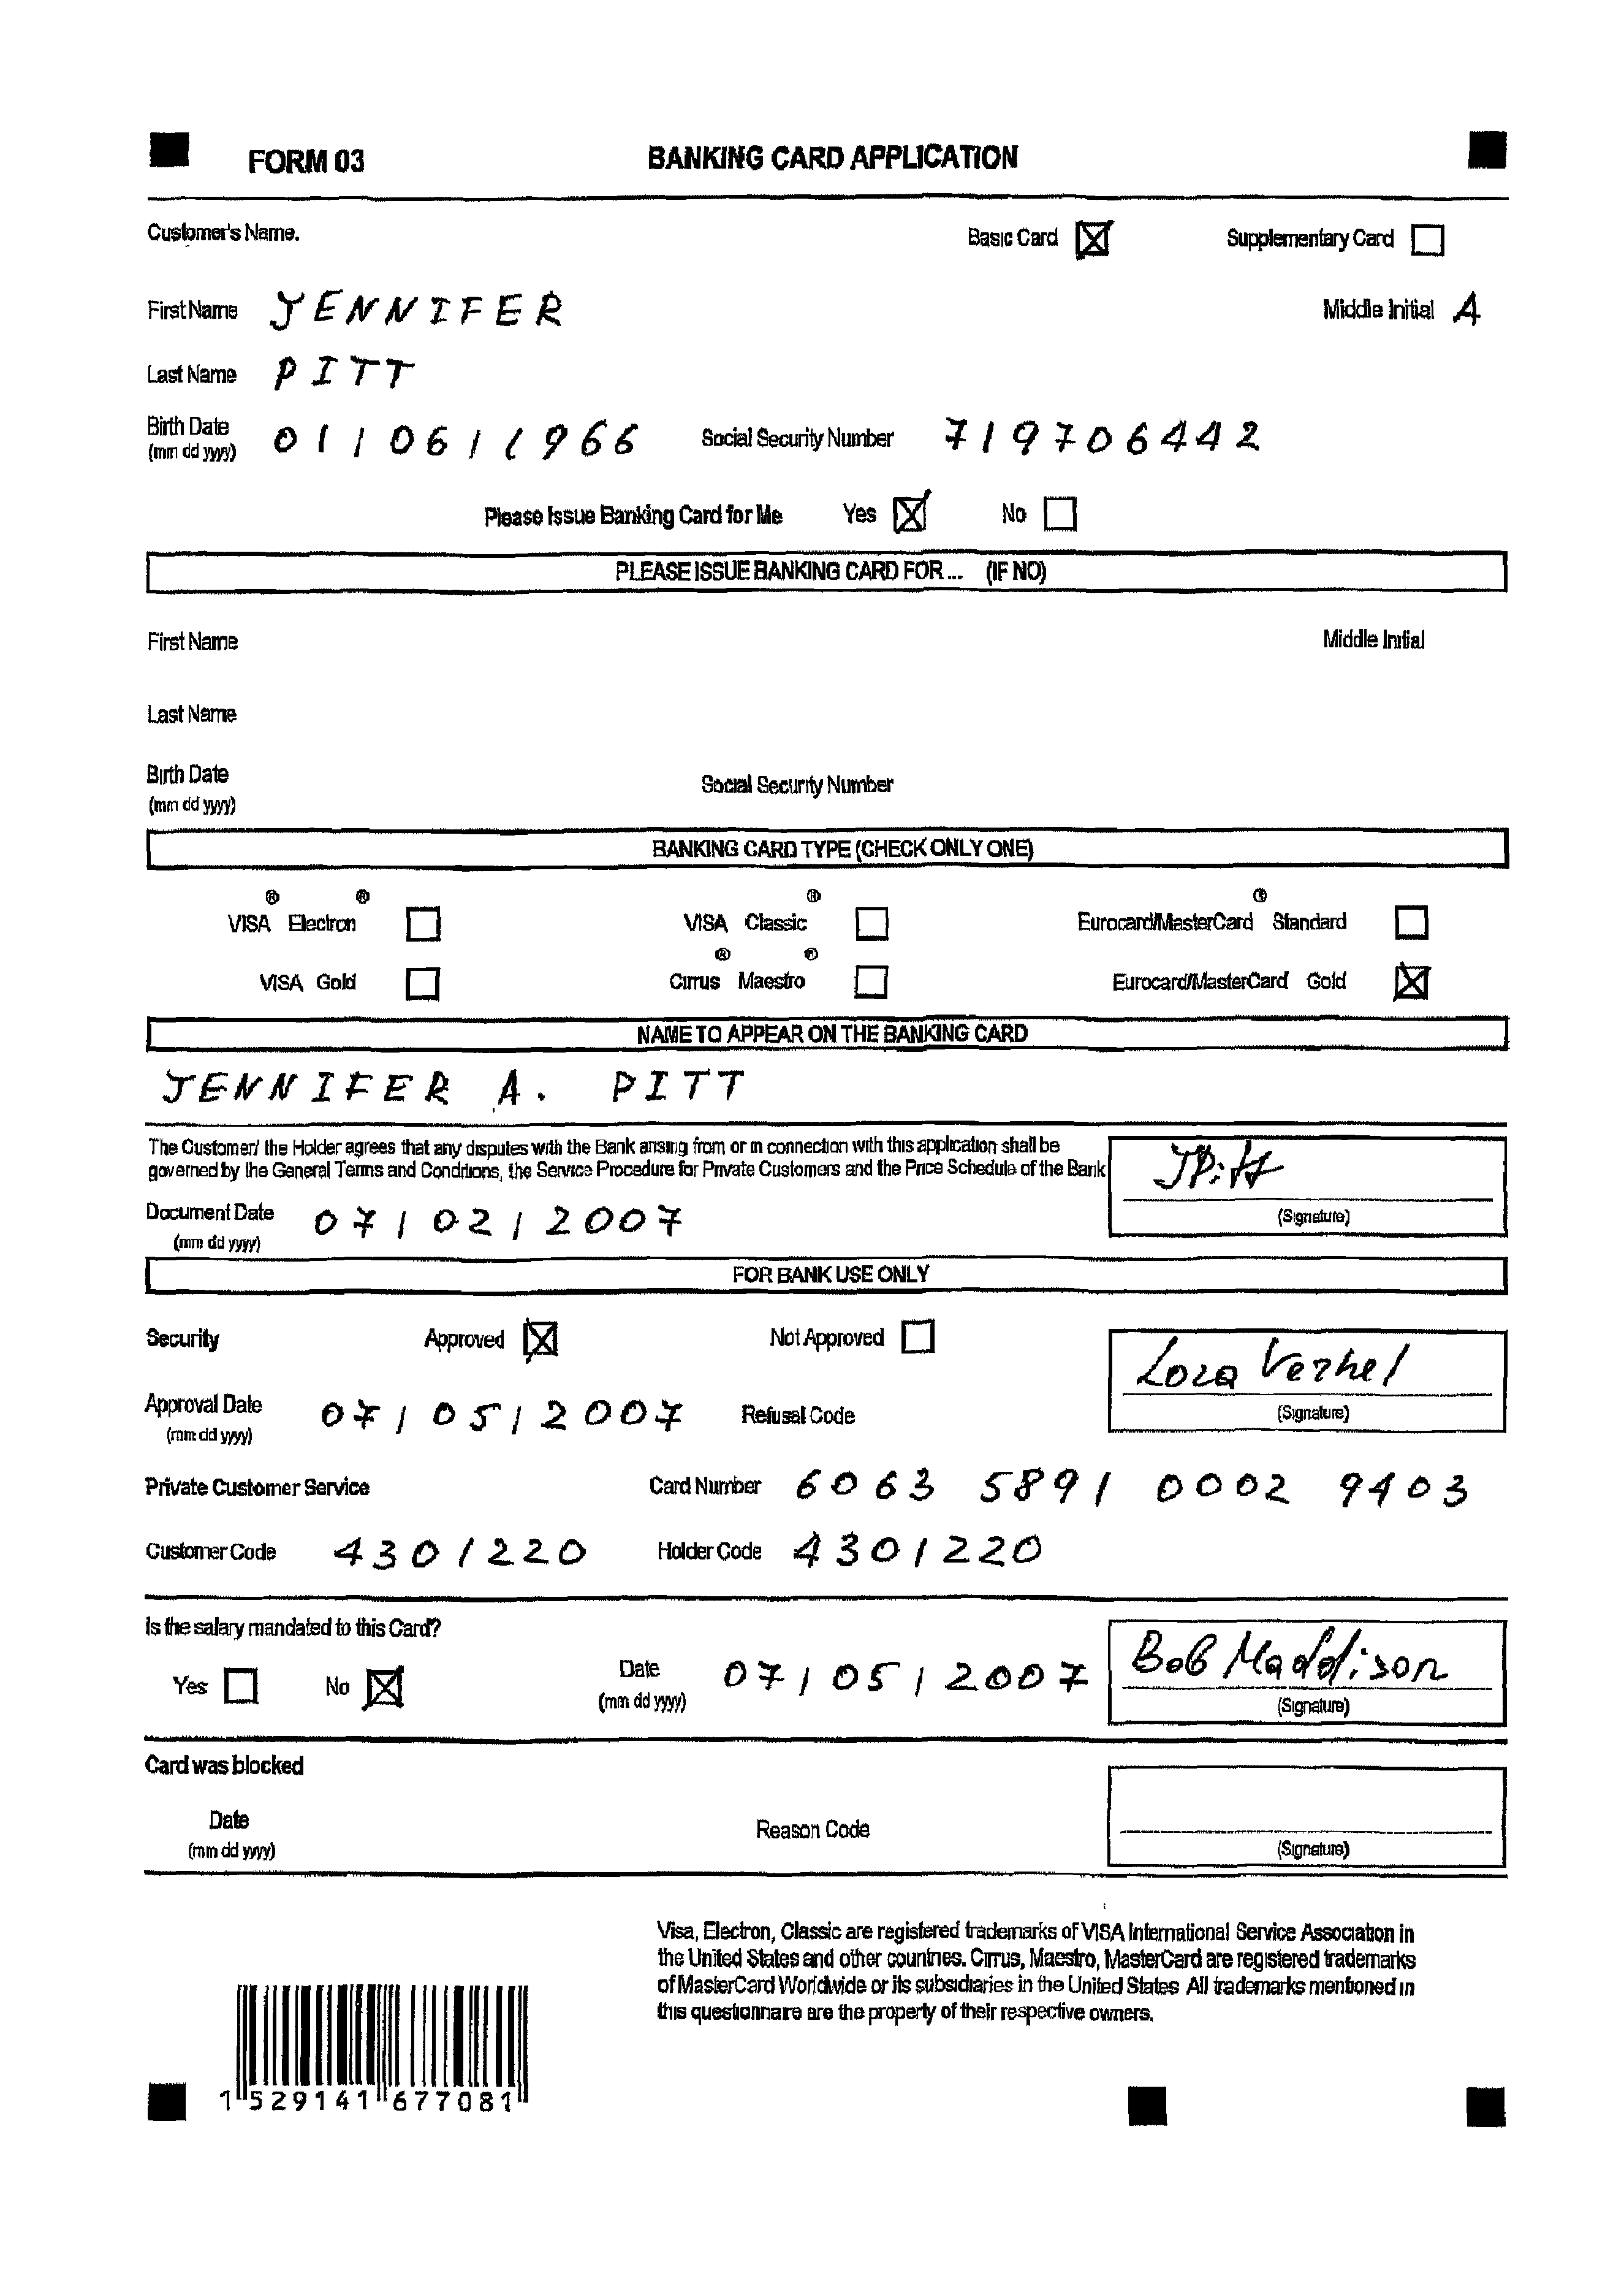 FORM 03 BANKING CARD APPLICATION
Customer's Name. Basic Card Supplementary Card
First Name JENNIFER Middle Initial A
Last Name PITT
Birth Date 01/06/1966 Social Security Number 719706442
(mm dd yyyy)
Please Issue Banking Card for Me Yes No
PLEASE ISSUE BANKING CARD FOR... (IF NO)
First Name Middle Initial
Last Name
Birth Date Social Security Number
(mm dd yyyy)
BANKING CARD TYPE (CHECK ONLY ONE)
VISA® Electron® VISA Classic® Eurocard/MasterCard® Standard
VISA Gold Cirrus® Maestro® Eurocard/MasterCard Gold
NAME TO APPEAR ON THE BANKING CARD
JENNIFER A. PITT
The Customer/ the Holder agrees that any disputes with the Bank arising from or in connection with this application shall be
governed by the General Terms and Conditions, the Service Procedure for Private Customers and the Price Schedule of the Bank
JPitt
Document Date 07/02/2007 (Signature)
(mm dd yyyy)
FOR BANK USE ONLY
Security Approved Not Approved
Lora Verhel
Approval Date 07/05/2007 Refusal Code (Signature)
(mm dd yyyy)
Private Customer Service Card Number 6063 5891 0002 9403
Customer Code 4301220 Holder Code 4301220
Is the salary mandated to this Card?
Yes No Date 07/05/2007 Bob Maddison
(mm dd yyyy) (Signature)
Card was blocked
Date Reason Code
(mm dd yyyy) (Signature)
Visa, Electron, Classic are registered trademarks of VISA International Service Association in
the United States and other countries. Cirrus, Maestro, MasterCard are registered trademarks
of MasterCard Worldwide or its subsidiaries in the United States All trademarks mentioned in
this questionnare are the property of their respective owners.
1 529141 677081